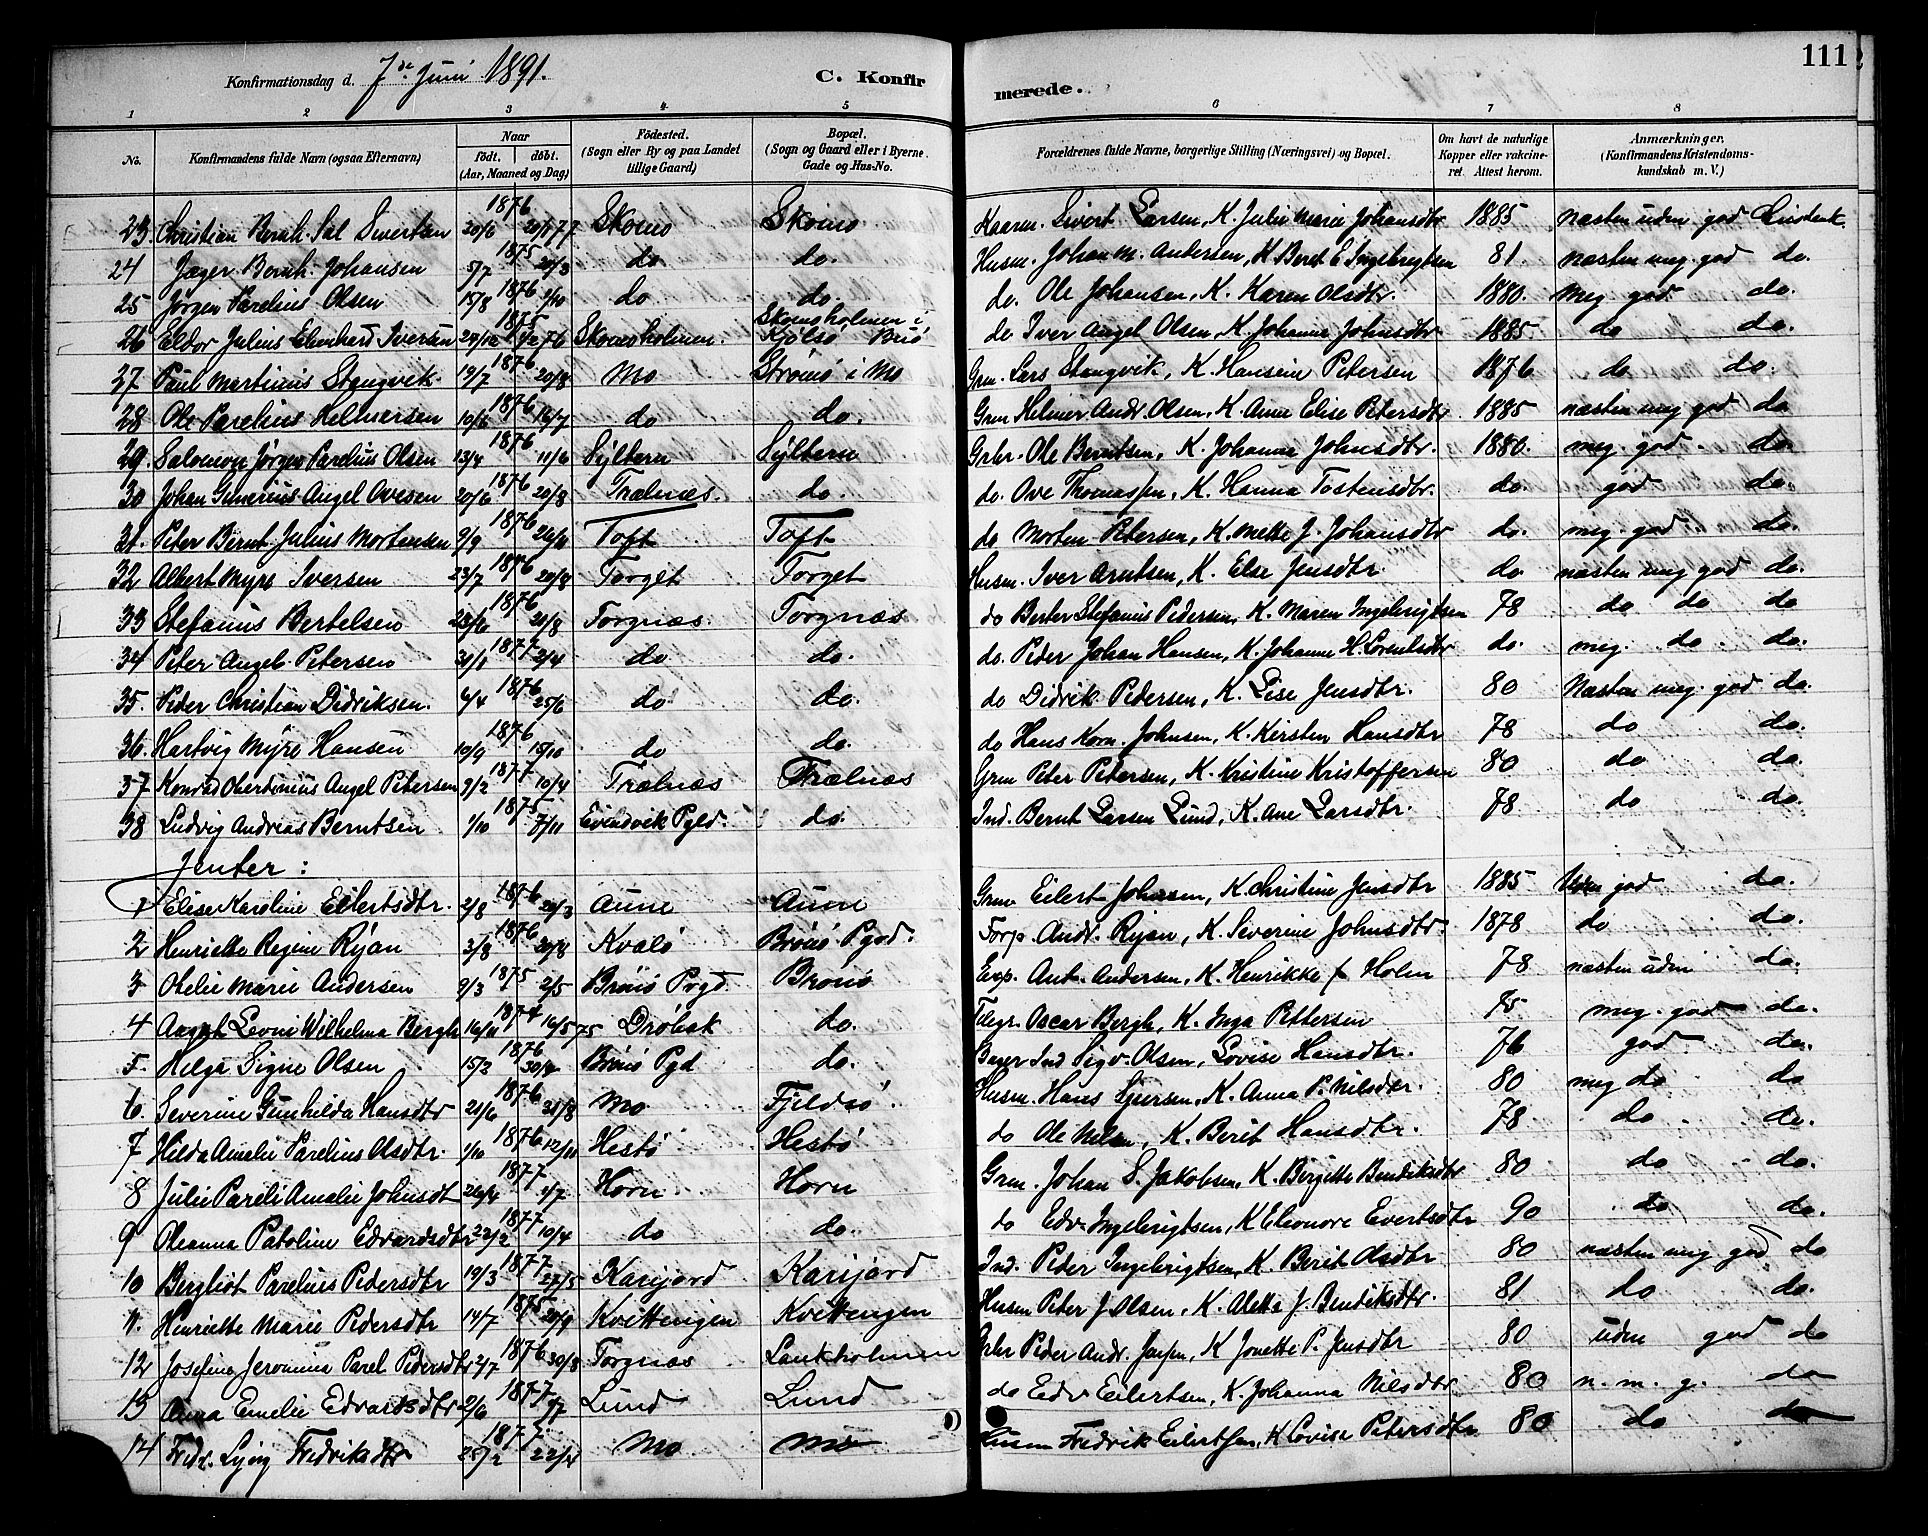 111
Konfirmationsdag d. 7de Juni 1891.
C. Konfir
merede.
1 2 3 4 5 6 7 8
No. Konfirmandens fulde Navn (ogsaa Efternavn) Naar födt. döbt. (Aar, Maaned og Dag) Födested. (Sogn eller By og paa Landet tillige Gaard) Bopæl. (Sogn og Gaard eller i Byerne Gade og Hus-No. Forældrenes fulde Navne, borgerlige Stilling (Næringsvei) og Bopæl. Om havt de naturlige Kopper eller vakcineret. Attest herom. Anmærkninger. (Konfirmandens Kristendomskundskab m. V.)
23. Christian Bernh. Sal Sivertsen 20/6 1876 Skomo Skomo Sivert Larsen, K. Julie Marie Johansdtr 1885 næsten uden god
24 Jæger Bernh. Johansen 5/7 1875 20/3 do do. Husm. Johan M. Andersen, K. Beret E. Ingebrigtsen 81. næsten meg god do.
25 Jörgen Parelius Olsen 15/8 1876 1/10 do do. do. Ole Johansen, K. Karen Olsdtr. 1880. meg god do.
26 Eldor Julius Edvard Iversen 24/12 1875 Skomsholmen. Skomsholmen i Kjølsö Brö do Iver Angel Olsen, K. Johanna Johnsdtr 1885 do do.
27 Paul Martinius Stangvik. 19/7 1876 20/8 Mo Strömö i Mo Grm. Lars Stangvik, K. Hansine Petersen 1876 do do.
28 Ole Parelius Helmersen 10/6 1876 16/7 do do. Grm Helmer Andr. Olsen, K. Anne Elise Petersdtr 1885 næsten meg god do
29. Salomon Jörgen Parelius Olsen 13/4 1876 11/6 Sÿltern Sÿltern Grbr. Ole Berntsen, K. Johanna Johnsdtr. 1880. meg. god. do.
30 Johan Angel Ovesen 20/6 1876 20/8 Trælnæs. do. do. Ove Thomassen, K. Hanna Tostensdtr. do. god do.
31. Peter Bernt Julius Mortensen 9/9 1876 26/11 Toft Toft do Morten Petersen, K. Mette J. Johansdtr do. meg. god do.
32 Albert Myre Iversen 23/7 1876 20/8 Torget Torget Husm. Iver Arntsen, K. Else Jensdtr do næsten meg god do.
33 Stefanus Bertelsen 23/6 1876 20/8 Torgnæs. Torgnæs do Stefanius Pedersen, K. Maren Ingebrigtsen 78 do do do
34 Peter Angel Petersen 31/1 1877 2/4 do do. do. Peder Johan Hansen, K. Johanne H. Lorentsdtr do. meg. do do.
35. Peder Christian Didriksen. 6/4 1876 25/6 do do. do Didrik Pedersen, K. Lise Jensdtr. 80 Næsten meg. god do.
36. Hartvig Myre Hansen 10/9 1876 15/10 do do. do Hans Korn. Johnsen, K. Kirsten Hansdtr 78 do do.
37 Konrad Angel Petersen 9/2 1877 10/4 Trælnæs Trælnæs Grm Peter Petersen, K. Kristine Kristoffersen 80 do do.
38 Ludvig Andreas Berntsen 1/10 1875 7/11 Evindvik Pgld. do. Ind. Bernt Larsen Lund, K. Ane Larsdtr. 78 do do.
Jenter:
1 Elise Karoline Eilertsdtr. 2/8 1876 20/3 Aune Aune Grm Eilert Johnsen, K. Christine Jensdtr 1885 Uden god do.
2 Henriette Regine Rÿan 3/8 1876 20/8 Kvalö Brönö Pgd. Forp. Andr. Rÿan, K. Severine Johnsdtr. 1878 do do.
3 Otelie Marie Andersen 9/3 1875 2/5 Brönö Prgd Brönö Exp. Ant. Andersen, K. Henrikke f. Holm 78 næsten uden do.
4 Leoni Wilhelma Bergh 16/11 1874 16/5 75 Dröbak do. Telegr. Oscar Bergh, K. Inga Pettersen 75 meg. god do.
5. Helga Signe Olsen 15/2 1876 30/4 Brönö Pgd do. Bager Ind Sigv. Olsen, Lovise Hansdtr. 76 god do.
6. Severine Gunhilda Hansdtr 21/6 1876 21/8 Mo Fjeldsö. Husm. Hans K. Anna P. Nilsdtr. 80 meg do do
7 Hilda Amalie Parelius Olsdtr. 1/10 1876 12/11 Hestö Hestö do Ole Nilsen, K. Berit Hansdtr. 78 do do.
8 Julie Pareli Amalie Johnsdt 26/4 1877 1/7 Horn Horn Grm. Johan S. Jakobsen, K. Bergitte Bendiksdtr 80 do do.
9 Oleanna Patoline Edvardsdtr 22/2 1877 10/4 do do. do Edv. Ingebrigtsen, K Eleonore Evertsdtr 90 do do.
10 Bergliot Parelius Pedersdtr 19/3 1877 27/5 Karijord Karijord Ind. Peder Ingebrigtsen, K. Berit Olsdtr 80 næsten meg god do
11. Henriette Marie Pedersdtr 14/7 1875 20/9 Kvittingen Kvittingen Husm Peter J. Olsen, K. Aletta J. Bendiksdtr. 81 do do.
12 Josefine Jeronima Parel Pedersdtr 2/7 1876 30/8 Torgnæs Lankholmen Grbr Peder Andr. Jensen, K Jonette P. Jensdtr 80 uden god do
13 Anna Emelie Edvardsdtr 2/6 1877 Lund Lund do Edv Eilertsen, K. Johanna Nilsdtr 80 n. m. g. do
14 Lyvig Fredriksdtr 25/2 1877 22/4 Mo Mo Husm Fredrik Eilertsen, K Lovise Petersdtr 80 do do